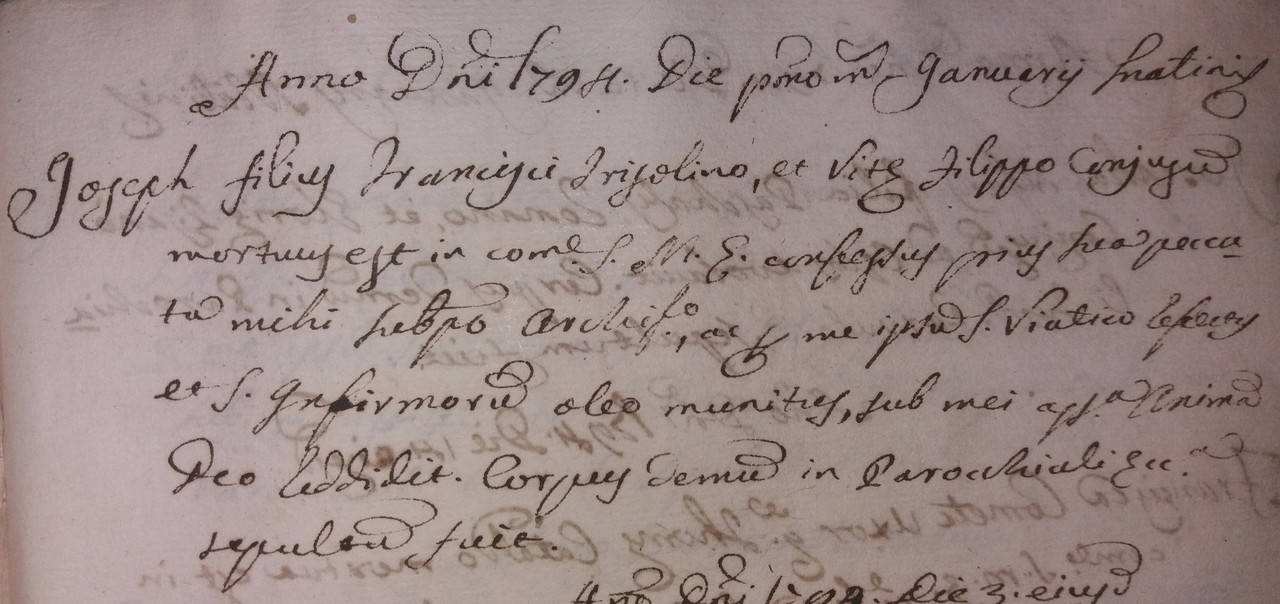 Anno Dni 1794. Die pmo ms Januarij
Joseph filius Francisci Frisolino, et Vitę Filippo Conjugū
mortuus est in comē S. M. E. confessus prius sua pecca-
ta mihi subpto Archipo, ac p me ipsū S. Viatico refectus
et S. Infirmorū oleo munitus, sub mei assa Animā
Deo reddidit. Corpus demū in Parocchiali Ecca
sepultū fuit.
Anō Dni 1794. Die 3. ejusd